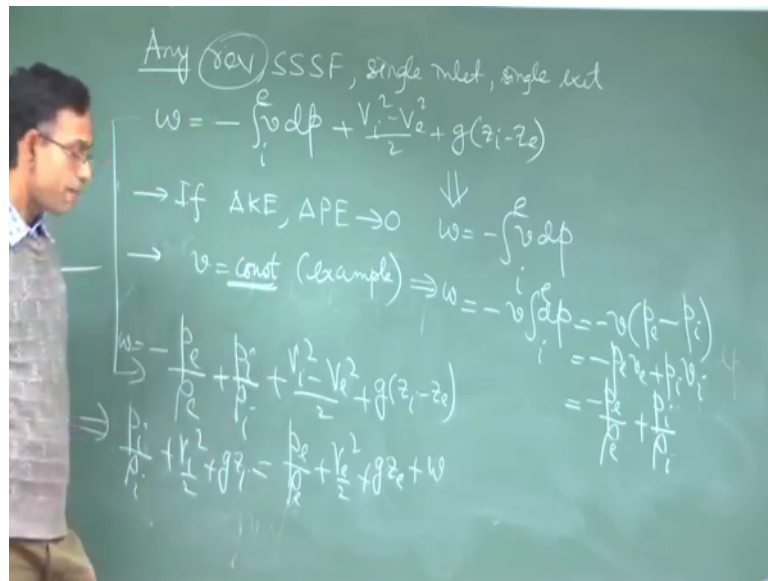 Any rev, SSSF, single inlet, single exit
w = - ∫_i^e v dp + (V_i^2 - V_e^2)/2 + g(z_i - z_e)
⇓
→ If ΔKE, ΔPE → 0
w = - ∫_i^e v dp
→ v = const (example) ⇒ w = - v ∫_i^e dp = - v(p_e - p_i)
= - p_e v_e + p_i v_i
= - p_e/ρ_e + p_i/ρ_i
w = - p_e/ρ_e + p_i/ρ_i + (V_i^2 - V_e^2)/2 + g(z_i - z_e)
⇒ p_i/ρ_i + V_i^2/2 + gz_i = p_e/ρ_e + V_e^2/2 + gz_e + w